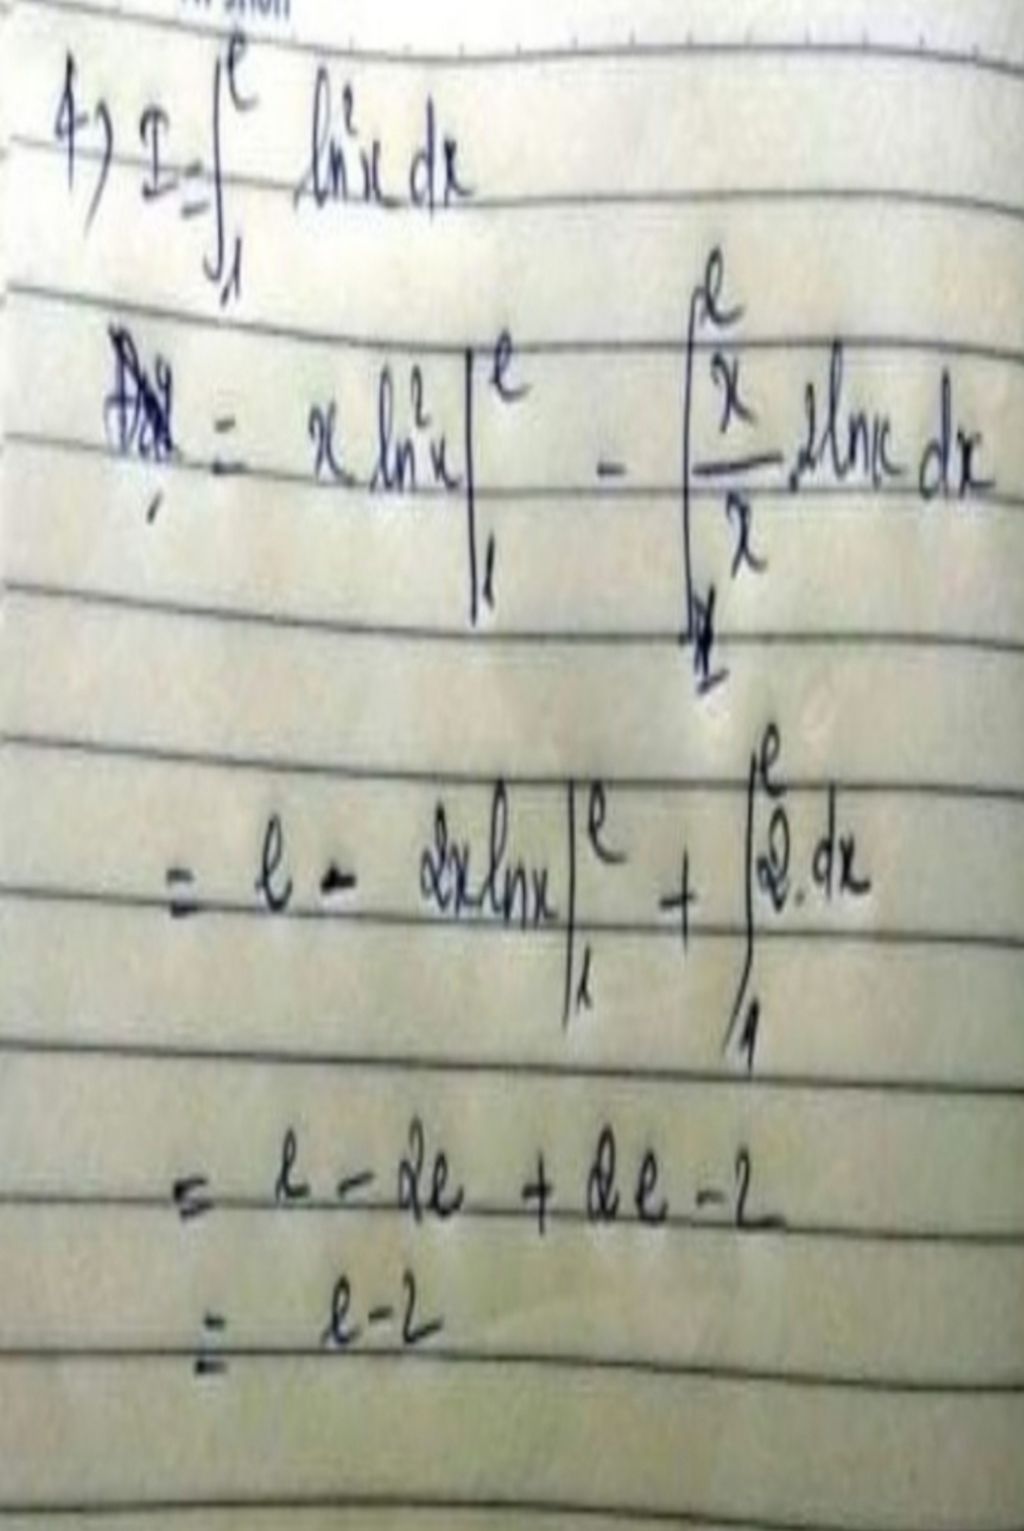 1) I = ∫₁ᵉ ln²x dx
= x ln²x |₁ᵉ - ∫₁ᵉ x/x 2lnx dx
= e - 2xlnx |₁ᵉ + ∫₁ᵉ 2.dx
= e - 2e + 2e - 2
= e - 2